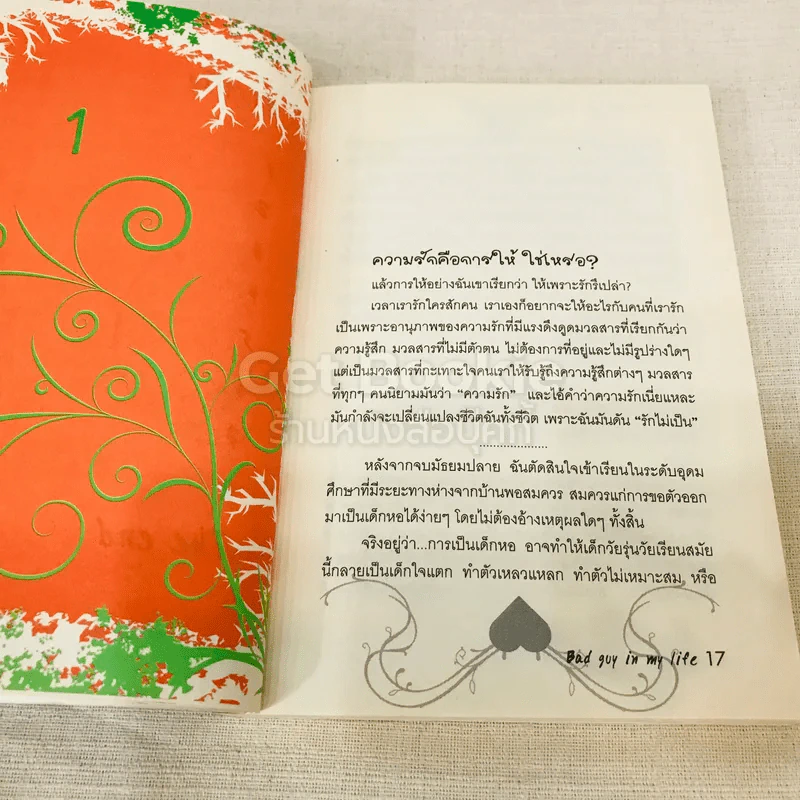 1
ความรักคือการให้ ใช่เหรอ?
แล้วการให้อย่างฉันเขาเรียกว่า ให้เพราะรักรึเปล่า?
เวลาเรารักใครสักคน เราเองก็อยากจะให้อะไรกับคนที่เรารัก
เป็นเพราะอานุภาพของความรักที่มีแรงดึงดูดมวลสารที่เรียกกันว่า
ความรู้สึก มวลสารที่ไม่มีตัวตน ไม่ต้องการที่อยู่และไม่มีรูปร่างใดๆ
แต่เป็นมวลสารที่กะเทาะใจคนเราให้รับรู้ถึงความรู้สึกต่างๆ มวลสาร
ที่ทุกๆ คนนิยามมันว่า “ความรัก” และไอ้คำว่าความรักเนี่ยแหละ
มันกำลังจะเปลี่ยนแปลงชีวิตฉันทั้งชีวิต เพราะฉันมันดัน “รักไม่เป็น”
....................
หลังจากจบมัธยมปลาย ฉันตัดสินใจเข้าเรียนในระดับอุดม
ศึกษาที่มีระยะทางห่างจากบ้านพอสมควร สมควรแก่การขอตัวออก
มาเป็นเด็กหอได้ง่ายๆ โดยไม่ต้องอ้างเหตุผลใดๆ ทั้งสิ้น
จริงอยู่ว่า...การเป็นเด็กหอ อาจทำให้เด็กวัยรุ่นวัยเรียนสมัย
นี้กลายเป็นเด็กใจแตก ทำตัวเหลวแหลก ทำตัวไม่เหมาะสม หรือ
Bad guy in my life 17
ร้านหนังสือบุ๊คทู